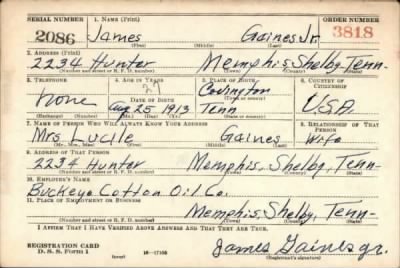 SERIAL NUMBER 1. NAME (Print) ORDER NUMBER
2086 James Gaines Jr. 3818
(First) (Middle) (Last)
2. ADDRESS (Print)
2234 Hunter Memphis, Shelby, Tenn-
(Number and street or R. F. D. number) (Town) (County) (State)
3. TELEPHONE 4. AGE IN YEARS 5. PLACE OF BIRTH 6. COUNTRY OF CITIZENSHIP
27 Covington
none DATE OF BIRTH (Town or county) U.S.A.
Aug 25, 1913 Tenn
(Exchange) (Number) (Mo.) (Day) (Yr.) (State or country)
7. NAME OF PERSON WHO WILL ALWAYS KNOW YOUR ADDRESS 8. RELATIONSHIP OF THAT PERSON
Mrs Lucile Gaines Wife
(Mr., Mrs., Miss) (First) (Middle) (Last)
9. ADDRESS OF THAT PERSON
2234 Hunter Memphis, Shelby, Tenn-
(Number and street or R. F. D. number) (Town) (County) (State)
10. EMPLOYER'S NAME
Buckeye Cotton Oil Co.
11. PLACE OF EMPLOYMENT OR BUSINESS
Memphis, Shelby, Tenn-
(Number and street or R. F. D. number) (Town) (County) (State)
I AFFIRM THAT I HAVE VERIFIED ABOVE ANSWERS AND THAT THEY ARE TRUE.
REGISTRATION CARD
D. S. S. Form 1 (over) 16—17105 James Gaines Jr.
(Registrant's signature)